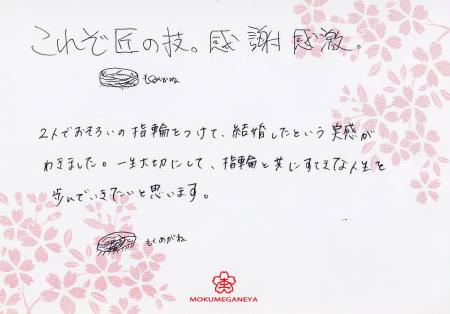 これぞ匠の技。感謝感激。
もくめがね
2人でおそろいの指輪をつけて、結婚したという実感が
わきました。一生大切にして、指輪と共にすてきな人生を
歩んでいきたいと思います。
もくめがね
MOKUMEGANEYA